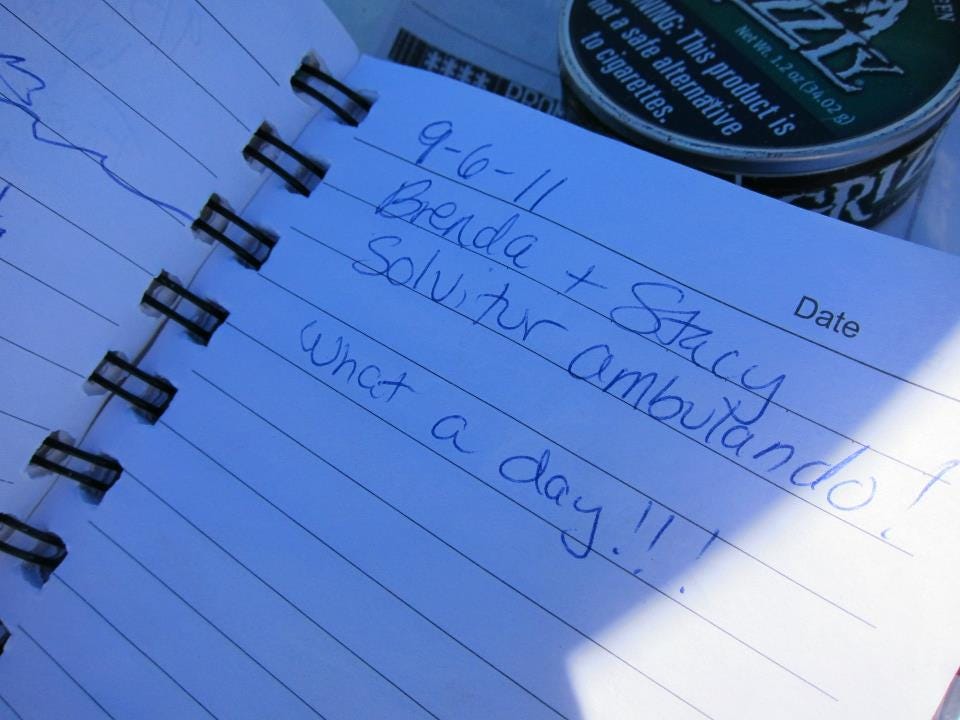 9-6-11
Date
Brenda + Stacy
Solvitur ambulando!
What a day!!!
GREEN
GRIZZLY
Net Wt. 1.2 oz (34.02 g)
WARNING: This product is
not a safe alternative
to cigarettes.
GRIZ